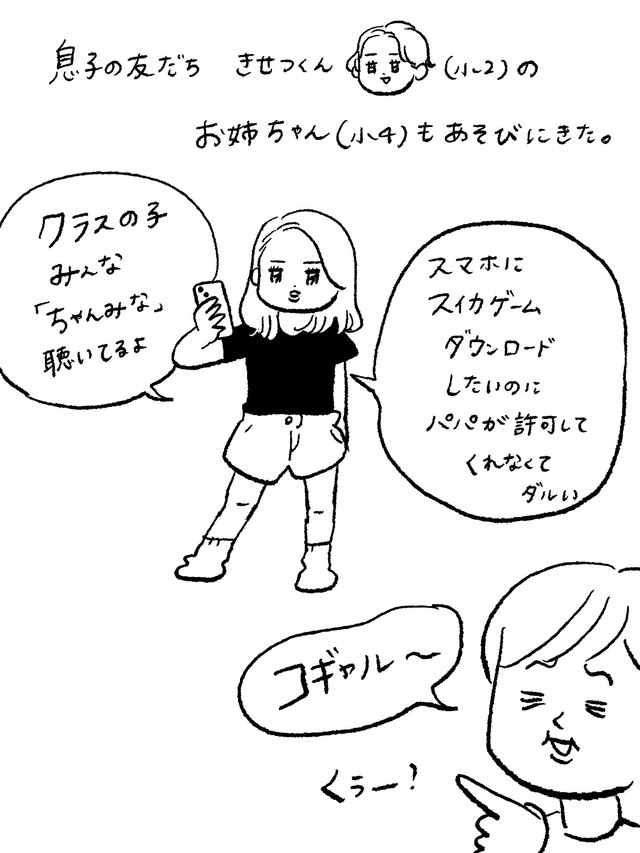 息子の友だち きせつくん (小2)の
お姉ちゃん(小4)もあそびにきた。
クラスの子
みんな
「ちゃんみな」
聴いてるよ
スマホに
スイカゲーム
ダウンロード
したいのに
パパが許可して
くれなくて
ダルい
コギャル〜
くぅー!